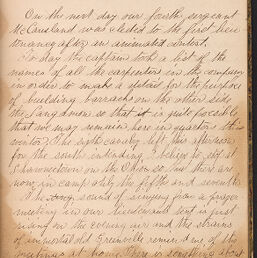 On the next day our fourth sergeant
McCausland was elected to the first lieu
tenancy after an animated contest.
To day the captain took a list of the
names of all the carpenters in the company
in order to make a detail for the purpose
of building barracks on the other side
the Sangamon so that it is quite possible
that we may remain here in quarters this
winter. The eighth cavalry left this afternoon
for the south intending I believe to stop at
Shawneetown on the Ohio so there are
now in camp only the fifth and seventh
The song sound of singing from a prayer
meeting in our lieutenants tent is just
rising on the evening air and the strains
of immortal old Greenville remind me of the
meetings at home. There is something about